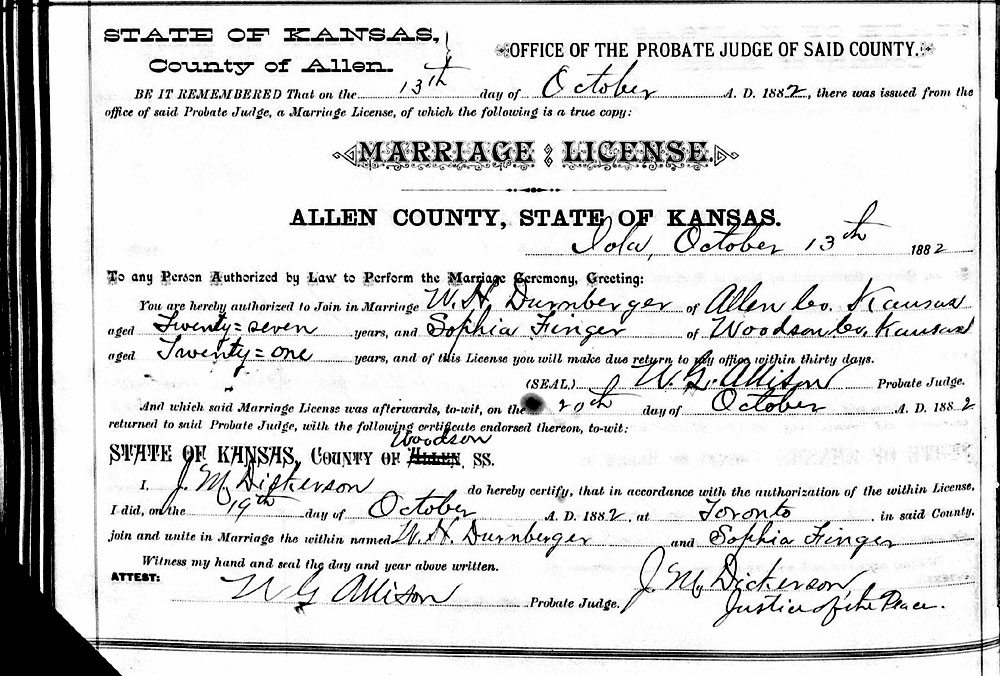 STATE OF KANSAS,
County of Allen.
OFFICE OF THE PROBATE JUDGE OF SAID COUNTY.
BE IT REMEMBERED That on the 13th day of October A. D. 1882, there was issued from the
office of said Probate Judge, a Marriage License, of which the following is a true copy:
MARRIAGE : LICENSE.
ALLEN COUNTY, STATE OF KANSAS.
Iola, October 13th 1882
To any Person Authorized by Law to Perform the Marriage Ceremony, Greeting:
You are hereby authorized to Join in Marriage W. H. Durnberger of Allen Co. Kansas
aged Twenty=seven years, and Sophia Finger of Woodson Co. Kansas
aged Twenty=one years, and of this License you will make due return to my office within thirty days.
(SEAL.) W. G. Allison Probate Judge.
And which said Marriage License was afterwards, to-wit, on the 20th day of October A. D. 1882
returned to said Probate Judge, with the following certificate endorsed thereon, to-wit:
Woodson
STATE OF KANSAS, COUNTY OF ALLEN, SS.
I, J. M. Dickerson do hereby certify, that in accordance with the authorization of the within License,
I did, on the 19th day of October A. D. 1882, at Toronto, in said County,
join and unite in Marriage the within named W. H. Durnberger and Sophia Finger
Witness my hand and seal the day and year above written.
ATTEST:
W G Allison Probate Judge.
J. M. Dickerson,
Justice of the Peace.